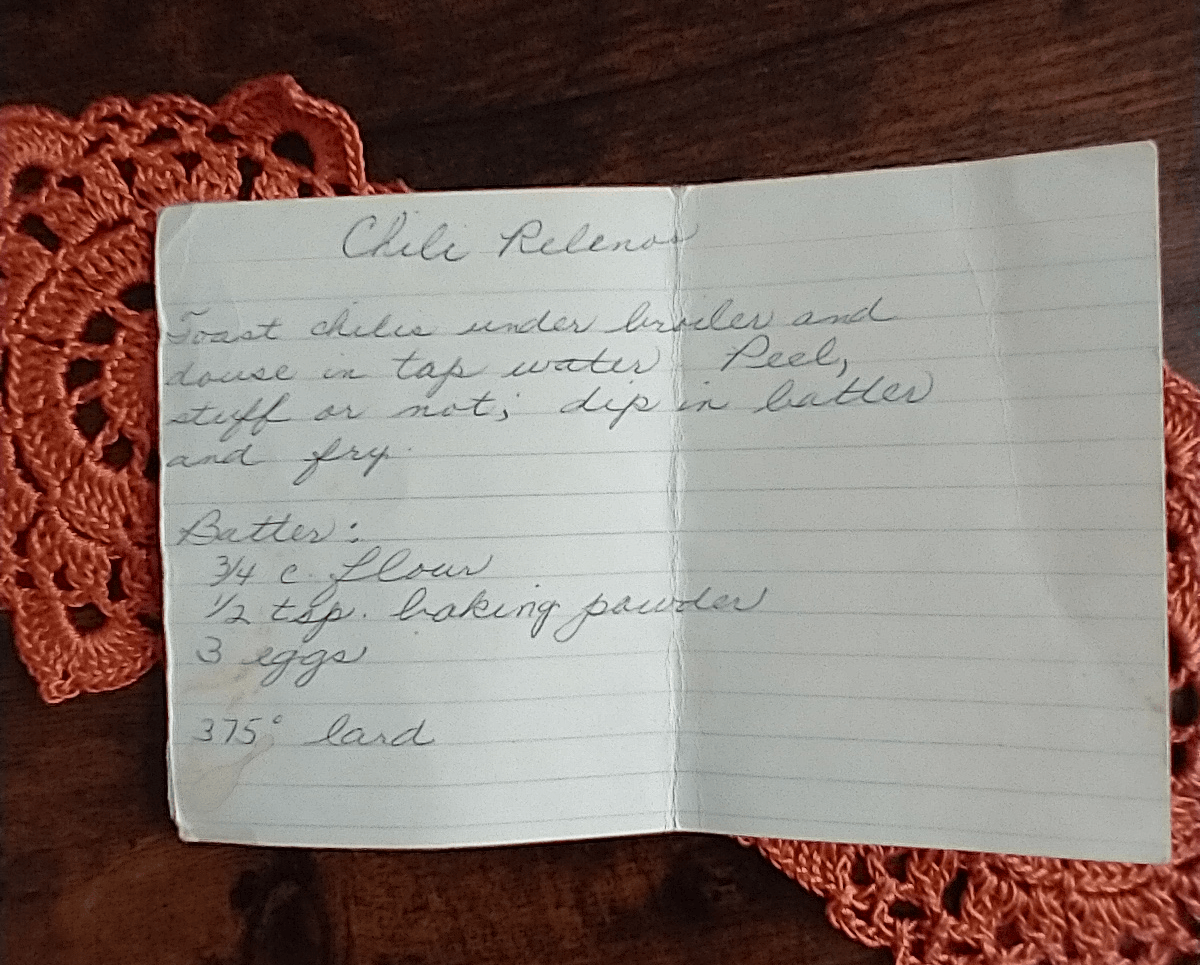 Chili Relenos
Toast chilis under broiler and
douse in tap water Peel,
stuff or not; dip in batter
and fry.
Batter:
3/4 c. flour
1/2 tsp. baking powder
3 eggs
375° lard